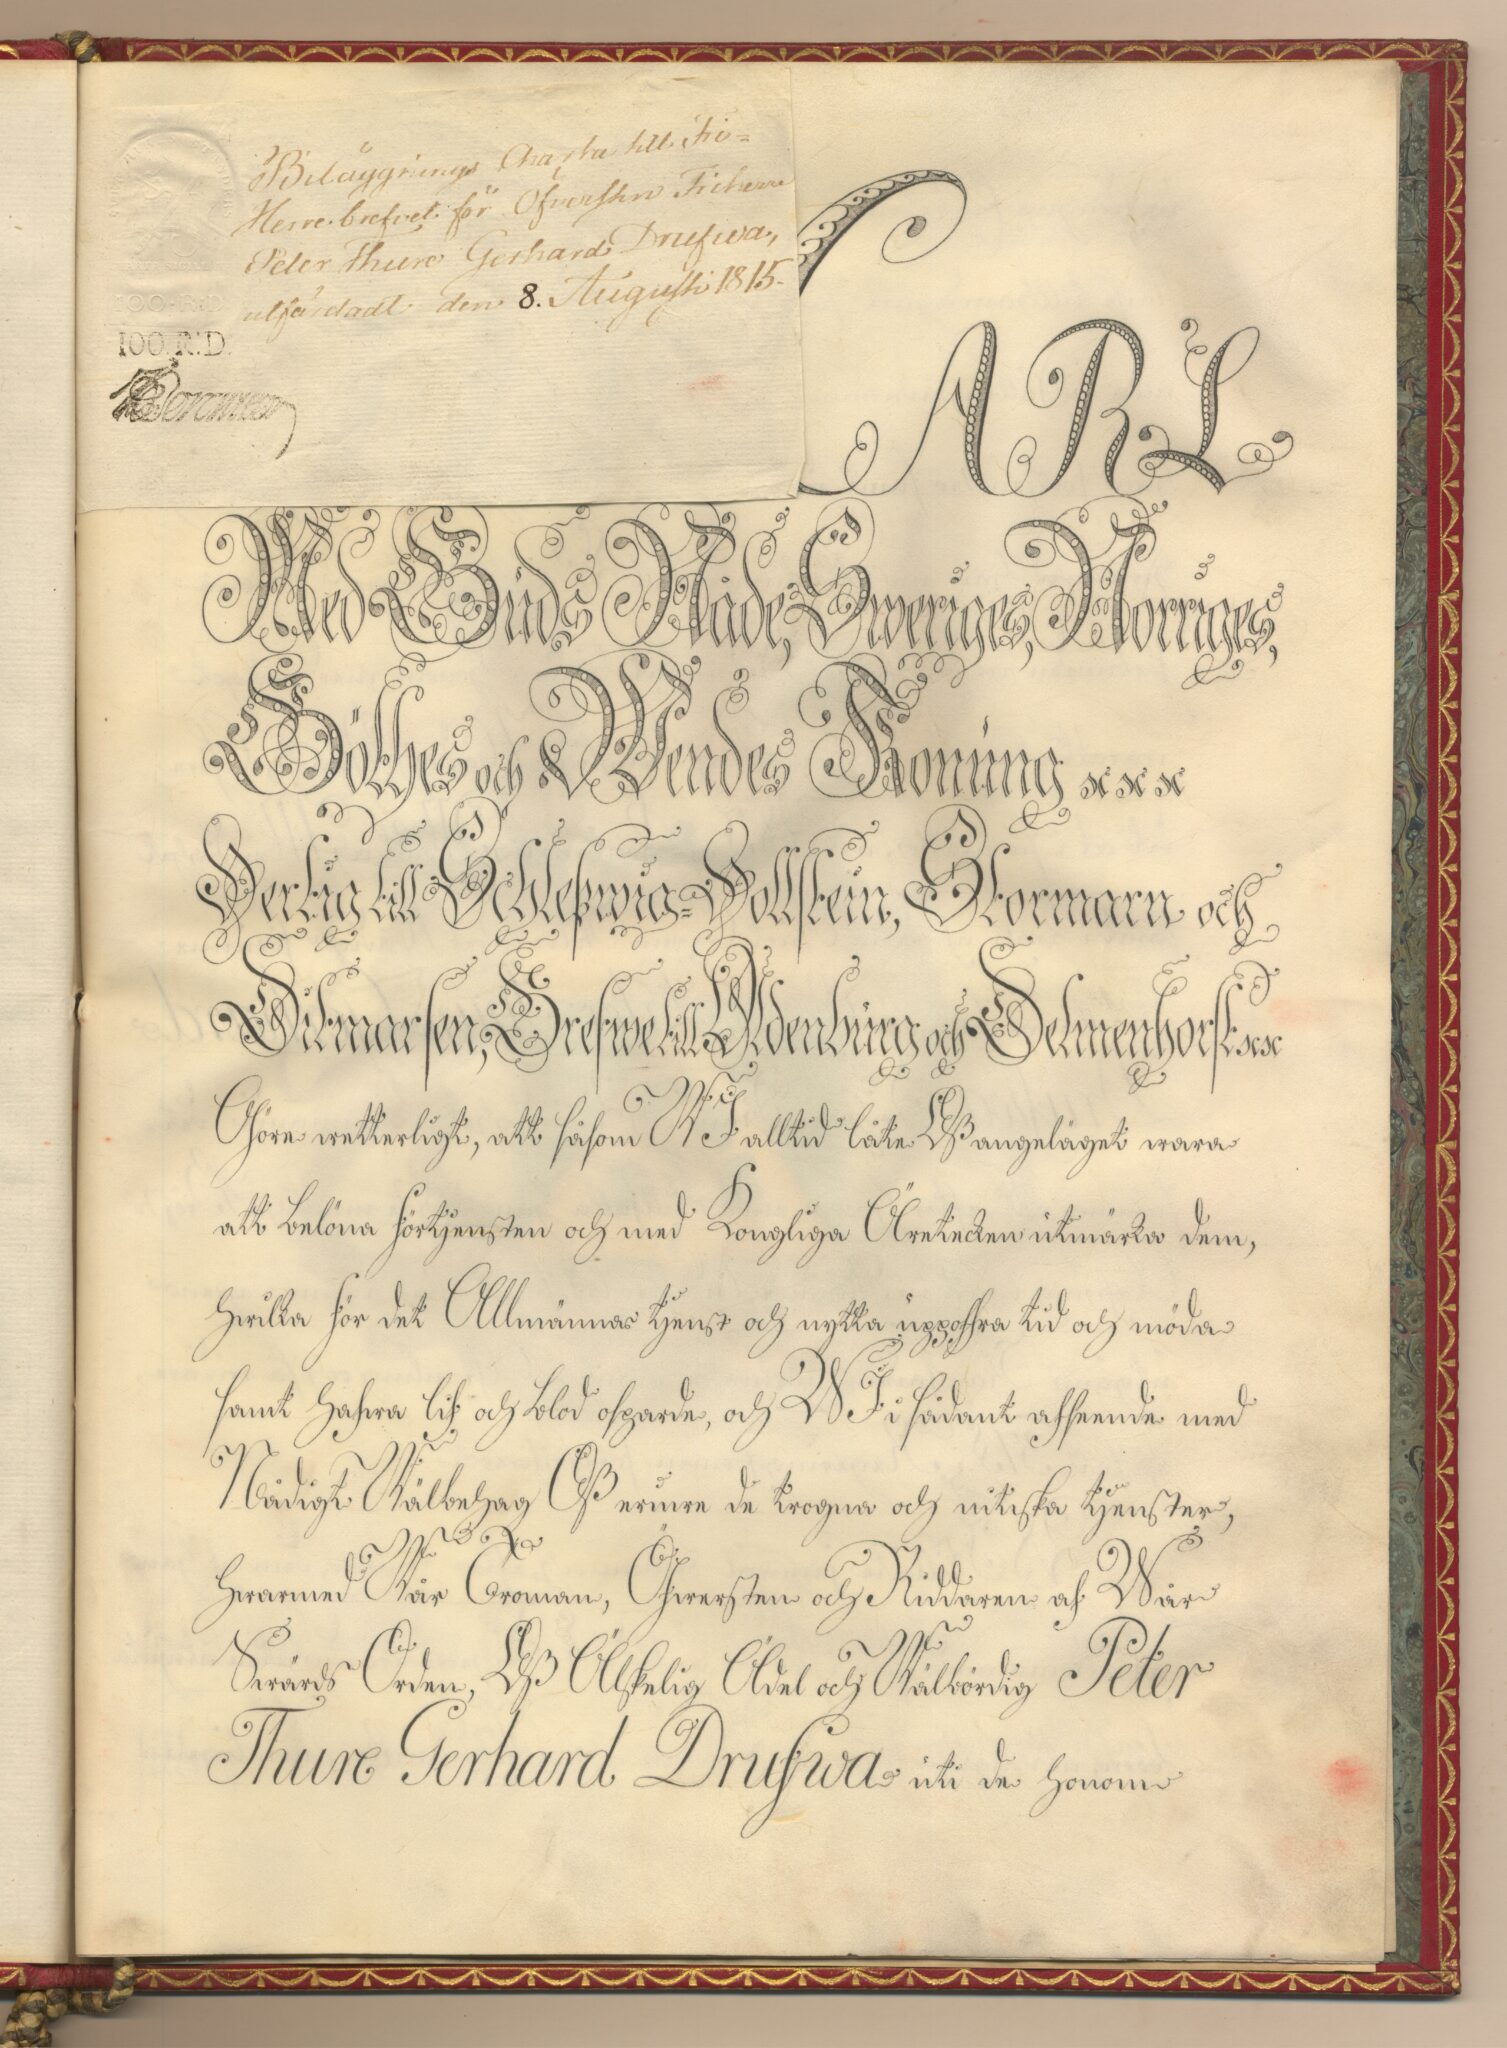 Beläggnings Charta till Fri=
Herre brefvet för Öfversten Friherre
Peter Thure Gerhard Drufwa,
utfärdadt den 8. Augusti 1815.
100. R:D.
100. R:D.
CARL
Med Guds Nåde, Sweriges, Norriges,
Göthes och Wendes Konung
Hertig till Schleßwig=Hollstein, Stormarn och
Ditmarsen, Grefwe till Oldenburg och Delmenhorst
Göre wetterligt, att såsom WI alltid låte Oß angeläget wara
att belöna förtjensten och med Kongliga Äretecken utmärka dem,
hwilka för det Allmännas tjenst och nytta uppoffra tid och möda
samt hafwa lif och blod ofparde, och WI i sådant afseende med
Nådigt Wälbehag Oß erinre de trogna och nitiska tjenster,
hwarmed Wår Troman, Öfwersten och Riddaren af Wår
Swärds Orden, Oß Älskelig Ädel och Wälbördig Peter
Thure Gerhard Drufwa uti de honom